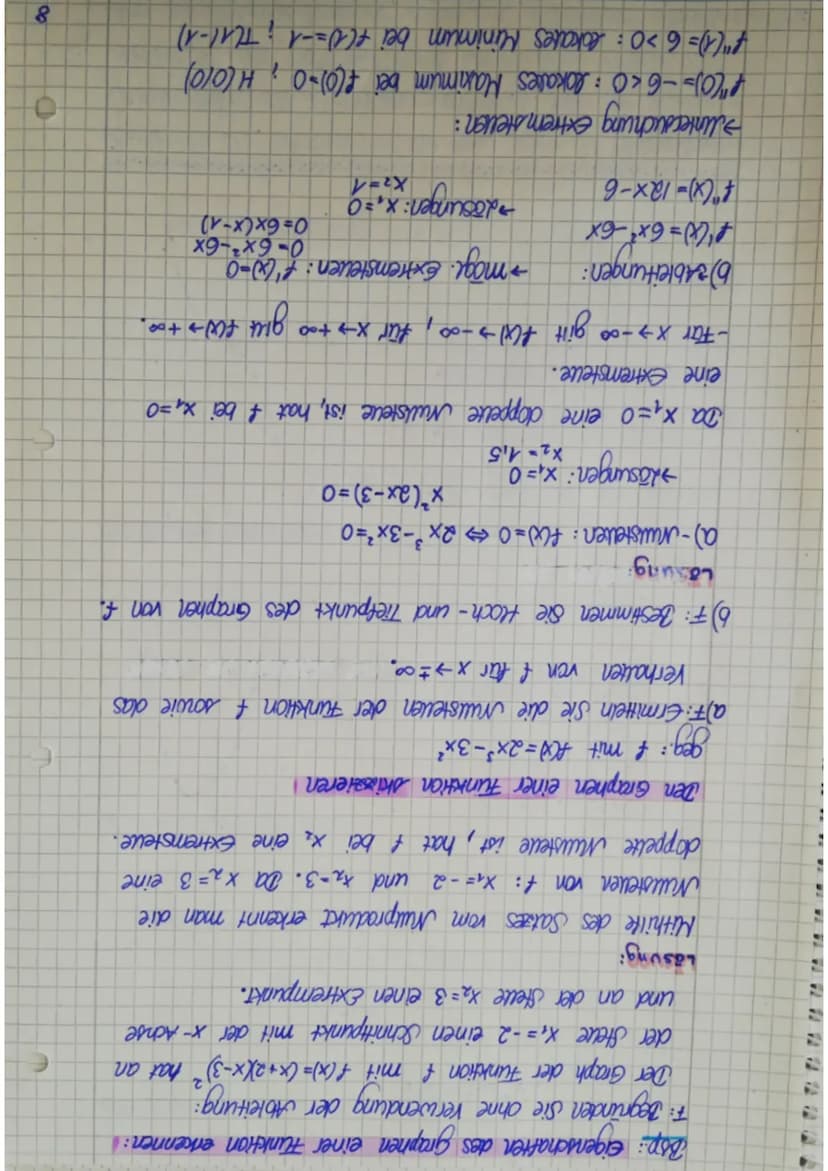 Bsp.: Eigenschaften des Graphen einer Funktion erkennen:
F: Begründen Sie ohne Verwendung der Ableitung:
Der Graph der Funktion f mit f(x)=(x+2)(x-3)² hat an
der Stelle x₁=-2 einen Schnittpunkt mit der x-Achse
und an der Stelle x₂=3 einen Extrempunkt.
Lösung:
Mithilfe des Satzes vom Nullprodukt erkennt man die
Nullstellen von f: x₁=-2 und x₂=3. Da x₂=3 eine
doppelte Nullstelle ist, hat f bei x₂ eine Extremstelle.
Den Graphen einer Funktion skizzieren
geg.: f mit f(x)=2x³-3x²
a) F: Ermitteln Sie die Nullstellen der Funktion f sowie das
Verhalten von f für x→±∞.
b) F: Bestimmen Sie Hoch- und Tiefpunkt des Graphen von f.
Lösung:
a) -Nullstellen: f(x)=0 ⇔ 2x³-3x²=0
x²(2x-3)=0
→Lösungen: x₁=0
x₂=1,5
Da x₁=0 eine doppelte Nullstelle ist, hat f bei x₁=0
eine Extremstelle.
-Für x→-∞ gilt f(x)→-∞, für x→+∞ gilt f(x)→+∞.
b) Ableitungen: →mögl. Extremstellen: f'(x)=0
f'(x)=6x²-6x 0=6x²-6x
0=6x(x-1)
f''(x)=12x-6 →Lösungen: x₁=0
x₂=1
→Untersuchung Extremstellen:
f''(0)=-6<0: lokales Maximum bei f(0)=0; H(0|0)
f''(1)=6>0: lokales Minimum bei f(1)=-1; T(1|-1)
8